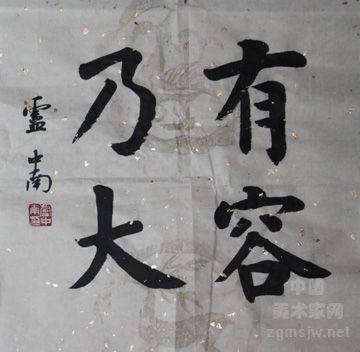 有容
乃大
灵中南
中国
美术家网
zgmsjw.net